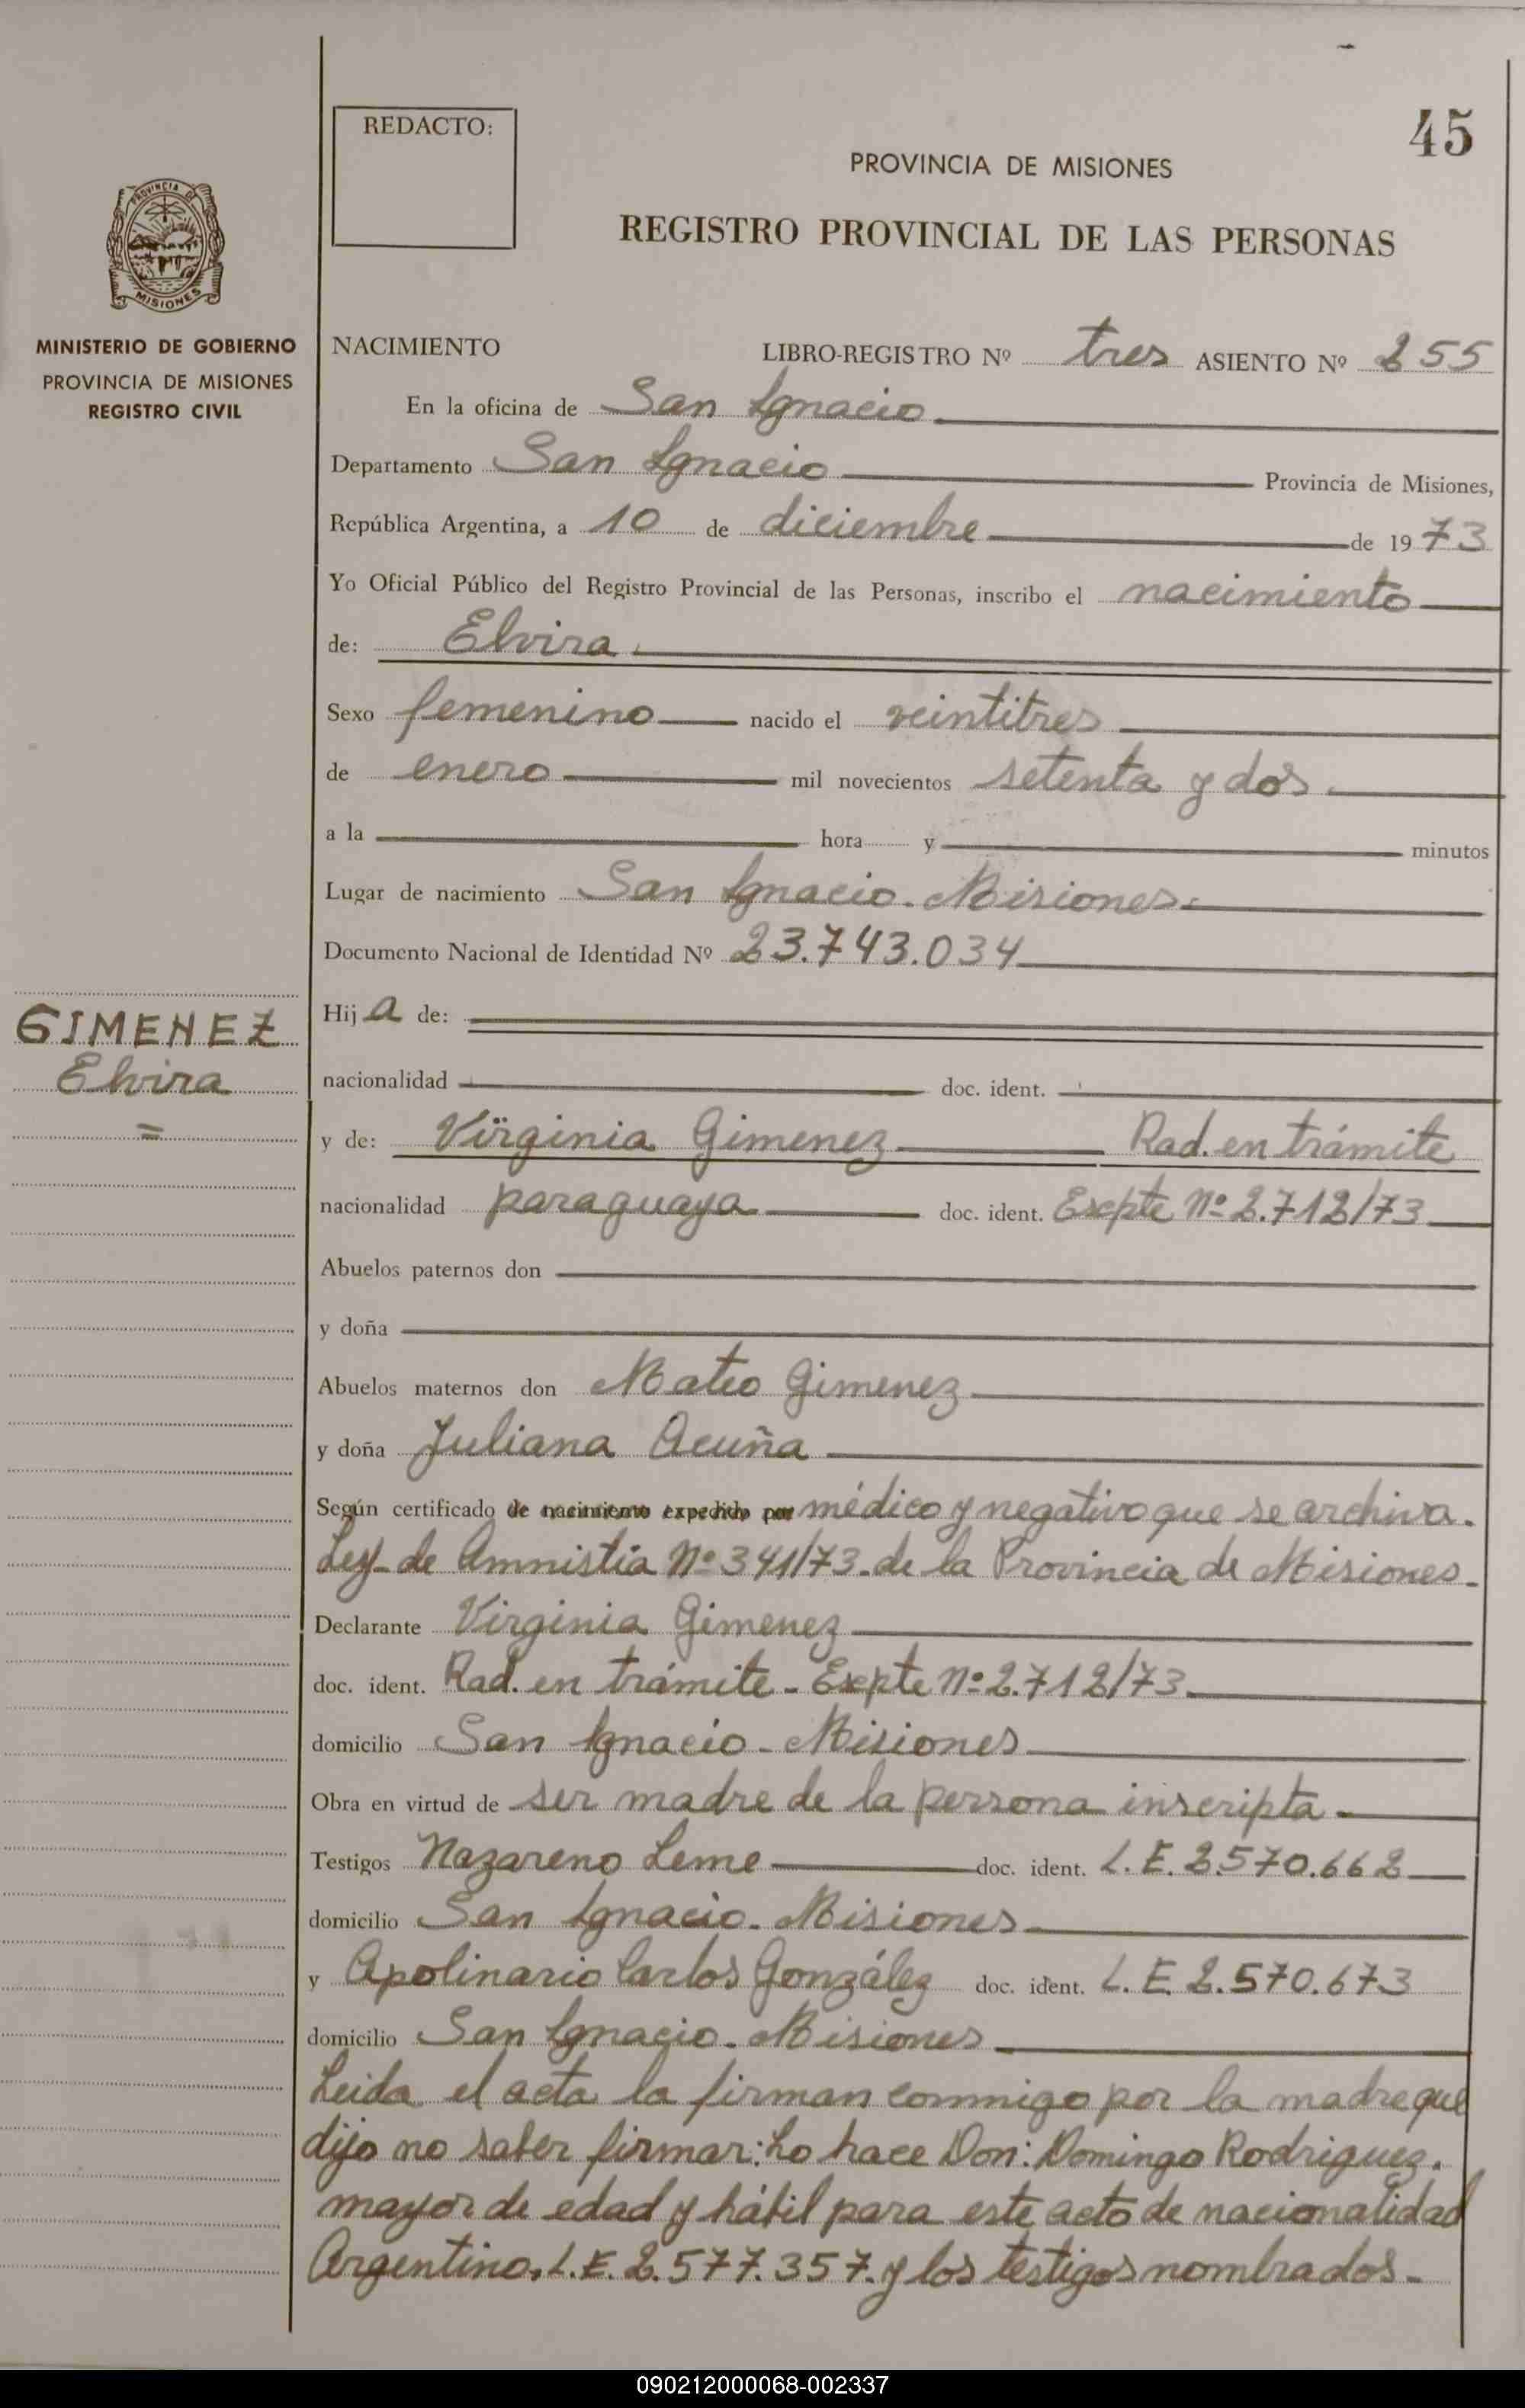 45
REDACTO:
PROVINCIA DE MISIONES
REGISTRO PROVINCIAL DE LAS PERSONAS
PROVINCIA DE
MISIONES
MINISTERIO DE GOBIERNO
PROVINCIA DE MISIONES
REGISTRO CIVIL
NACIMIENTO LIBRO-REGISTRO Nº tres ASIENTO Nº 255
En la oficina de San Ignacio
Departamento San Ignacio Provincia de Misiones,
República Argentina, a 10 de diciembre de 1973
Yo Oficial Público del Registro Provincial de las Personas, inscribo el nacimiento
de: Elvira.
Sexo femenino nacido el veintitres
de enero mil novecientos setenta y dos.
a la hora y minutos
Lugar de nacimiento San Ignacio. Misiones.
Documento Nacional de Identidad Nº 23.743.034
GIMENEZ
Elvira
=
Hija de:
nacionalidad doc. ident.
y de: Virginia Gimenez Rad. en trámite
nacionalidad paraguaya doc. ident. Expte Nº 2.712/73
Abuelos paternos don
y doña
Abuelos maternos don Mateo Gimenez
y doña Juliana Acuña
Según certificado de nacimiento expedido por médico y negativo que se archiva.
Ley de Amnistia Nº 341/73. de la Provincia de Misiones.
Declarante Virginia Gimenez
doc. ident. Rad. en trámite - Expte Nº 2.712/73.
domicilio San Ignacio - Misiones
Obra en virtud de ser madre de la persona inscripta.
Testigos Nazareno Leme doc. ident. L.E. 2.570.662
domicilio San Ignacio. Misiones
y Apolinario Carlos González doc. ident. L.E. 2.570.673
domicilio San Ignacio. Misiones
Leida el acta la firman conmigo por la madre que
dijo no saber firmar: Lo hace Don: Domingo Rodriguez.
mayor de edad y hábil para este acto de nacionalidad
Argentino. L.E. 2.577.357. y los testigos nombrados.
090212000068-002337